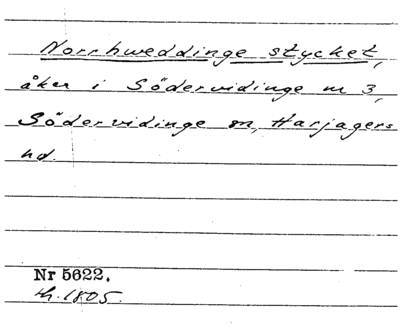 Norrhweddinge stycket,
åker i Södervidinge n 3,
Södervidinge sn, Harjagers
hd.
Nr 5622.
th. 1805.